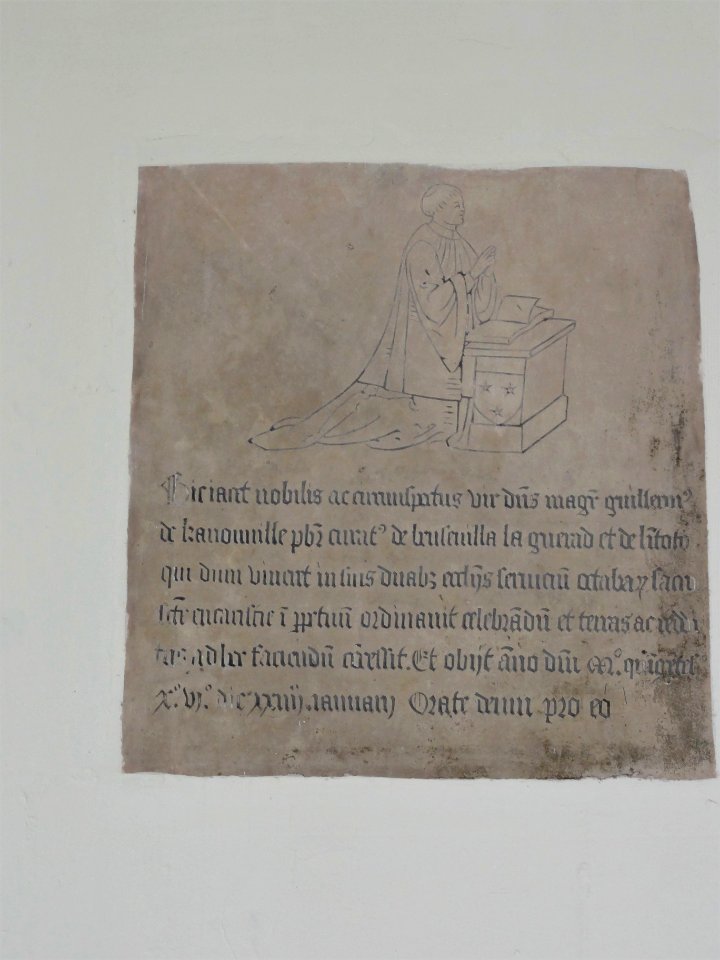 Hic iacet nobilis ac circunspectus vir dn̄s magr̄ guillerm᾽
de hanouuille pbr̄ curat᾽ de bruscuilla la guerad et de
qui dum vineret in suis duabꝫ ecclīis seruiciū octabaꝝ sacri
sctē eucaristie ī ꝑpetuū ordinauit celebrādū et terras ac reddi
tus ad hec faciendū cōcessit. Et obijt āno dn̄i mº. quīgētesº
xº. vjº. die xxiiij. ianuarij Orate deum pro eo